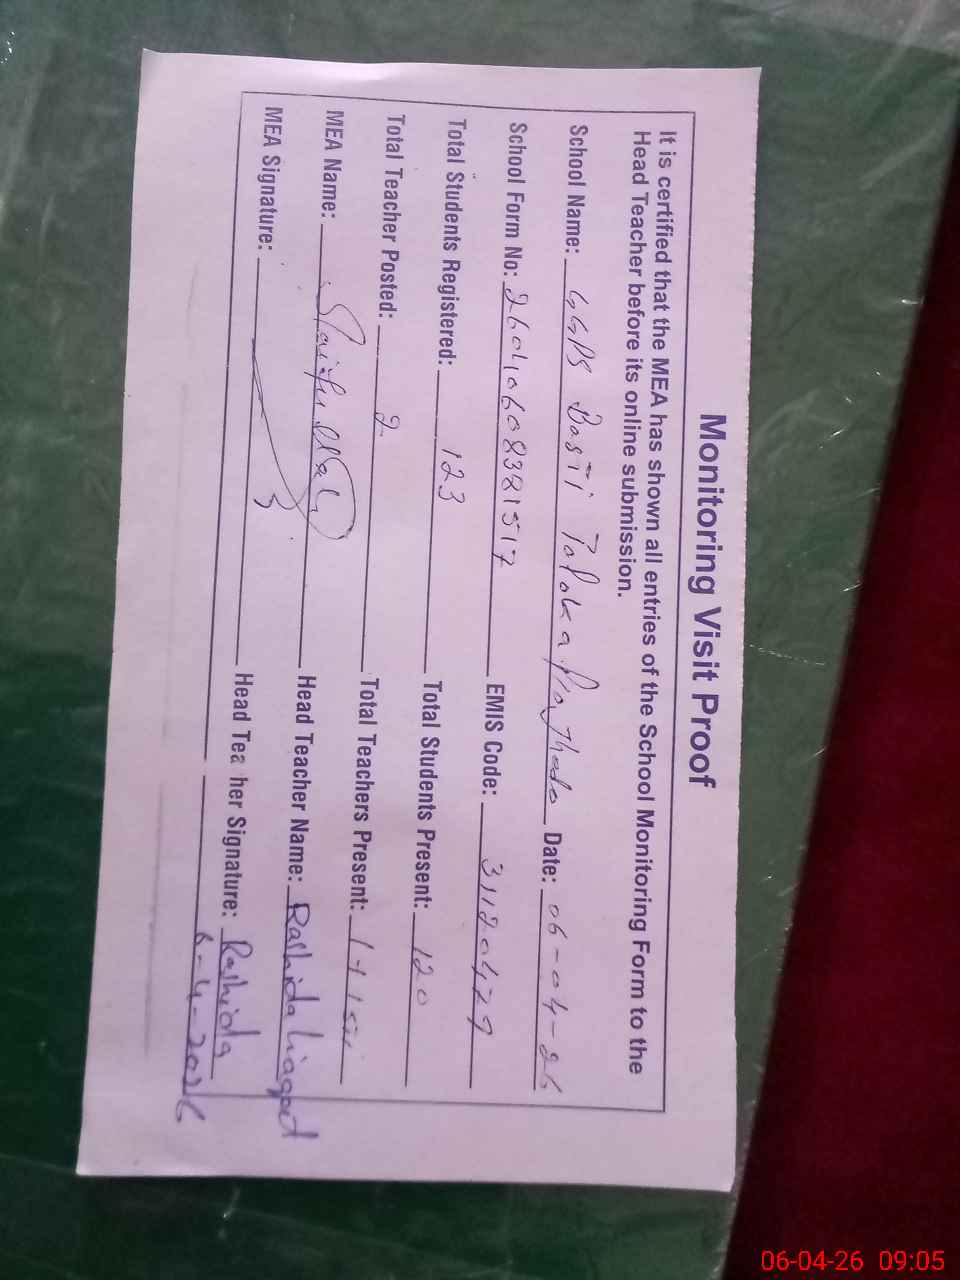 Monitoring Visit Proof
It is certified that the MEA has shown all entries of the School Monitoring Form to the
Head Teacher before its online submission.
School Name: GGPS Basti Date: 06-04-26
School Form No: 2601060838 1517 EMIS Code: 31120429
Total Students Registered: 123 Total Students Present: 120
Total Teacher Posted: 2 Total Teachers Present: 1+1
MEA Name: Head Teacher Name: Rashida Liaqat
MEA Signature: Head Teacher Signature: Rashida
6-4-2026
06-04-26 09:05